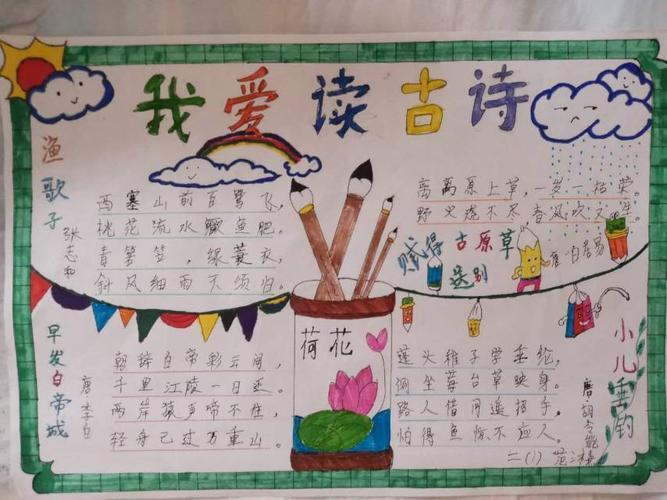 我爱读古诗
渔歌子
张志和
西塞山前百鹭飞，
桃花流水鳜鱼肥。
青箬笠，绿蓑衣，
斜风细雨不须归。
离离原上草，一岁一枯荣
野火烧不尽，春风吹又生
赋得古原草
送别
唐 白居易
早发白帝城
唐 李白
朝辞白帝彩云间，
千里江陵一日还。
两岸猿声啼不住，
轻舟已过万重山。
荷花
小儿垂钓
唐 胡令能
蓬头稚子学垂纶，
侧坐莓台草映身。
路人借问遥招手，
怕得鱼惊不应人。
二(1)